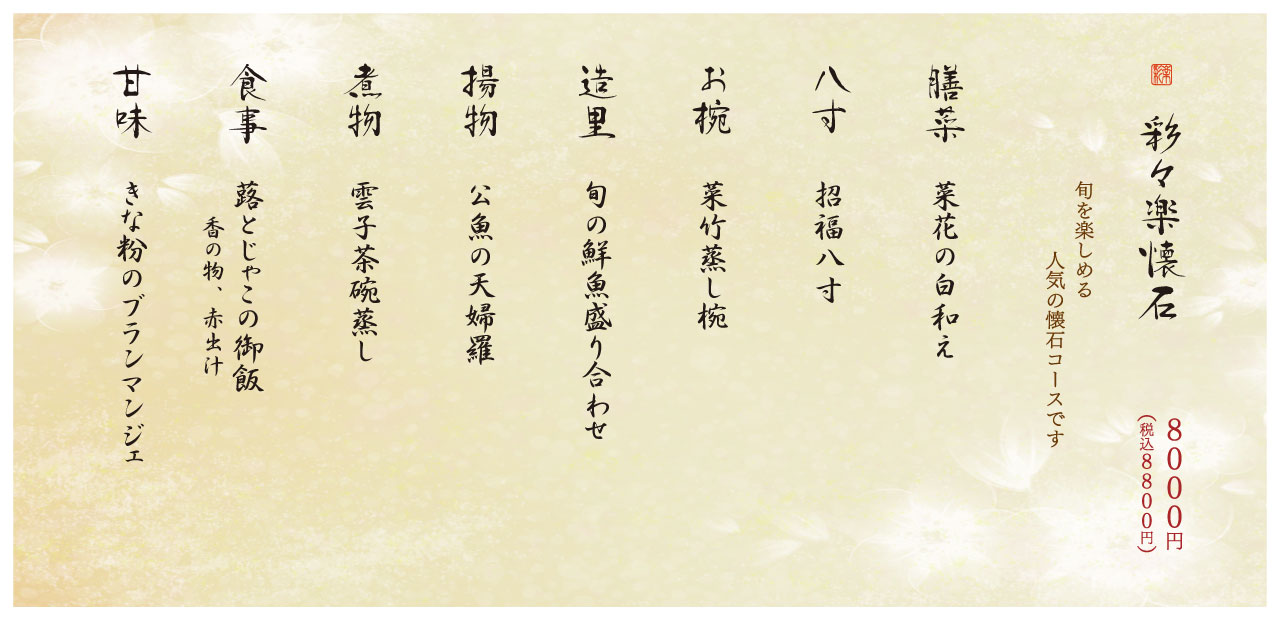 彩々楽懐石
8000円
(税込8800円)
旬を楽しめる
人気の懐石コースです
膳菜 菜花の白和え
八寸 招福八寸
お椀 菜竹蒸し椀
造里 旬の鮮魚盛り合わせ
揚物 公魚の天婦羅
煮物 雲子茶碗蒸し
食事 蕗とじゃこの御飯
香の物、赤出汁
甘味 きな粉のブランマンジェ